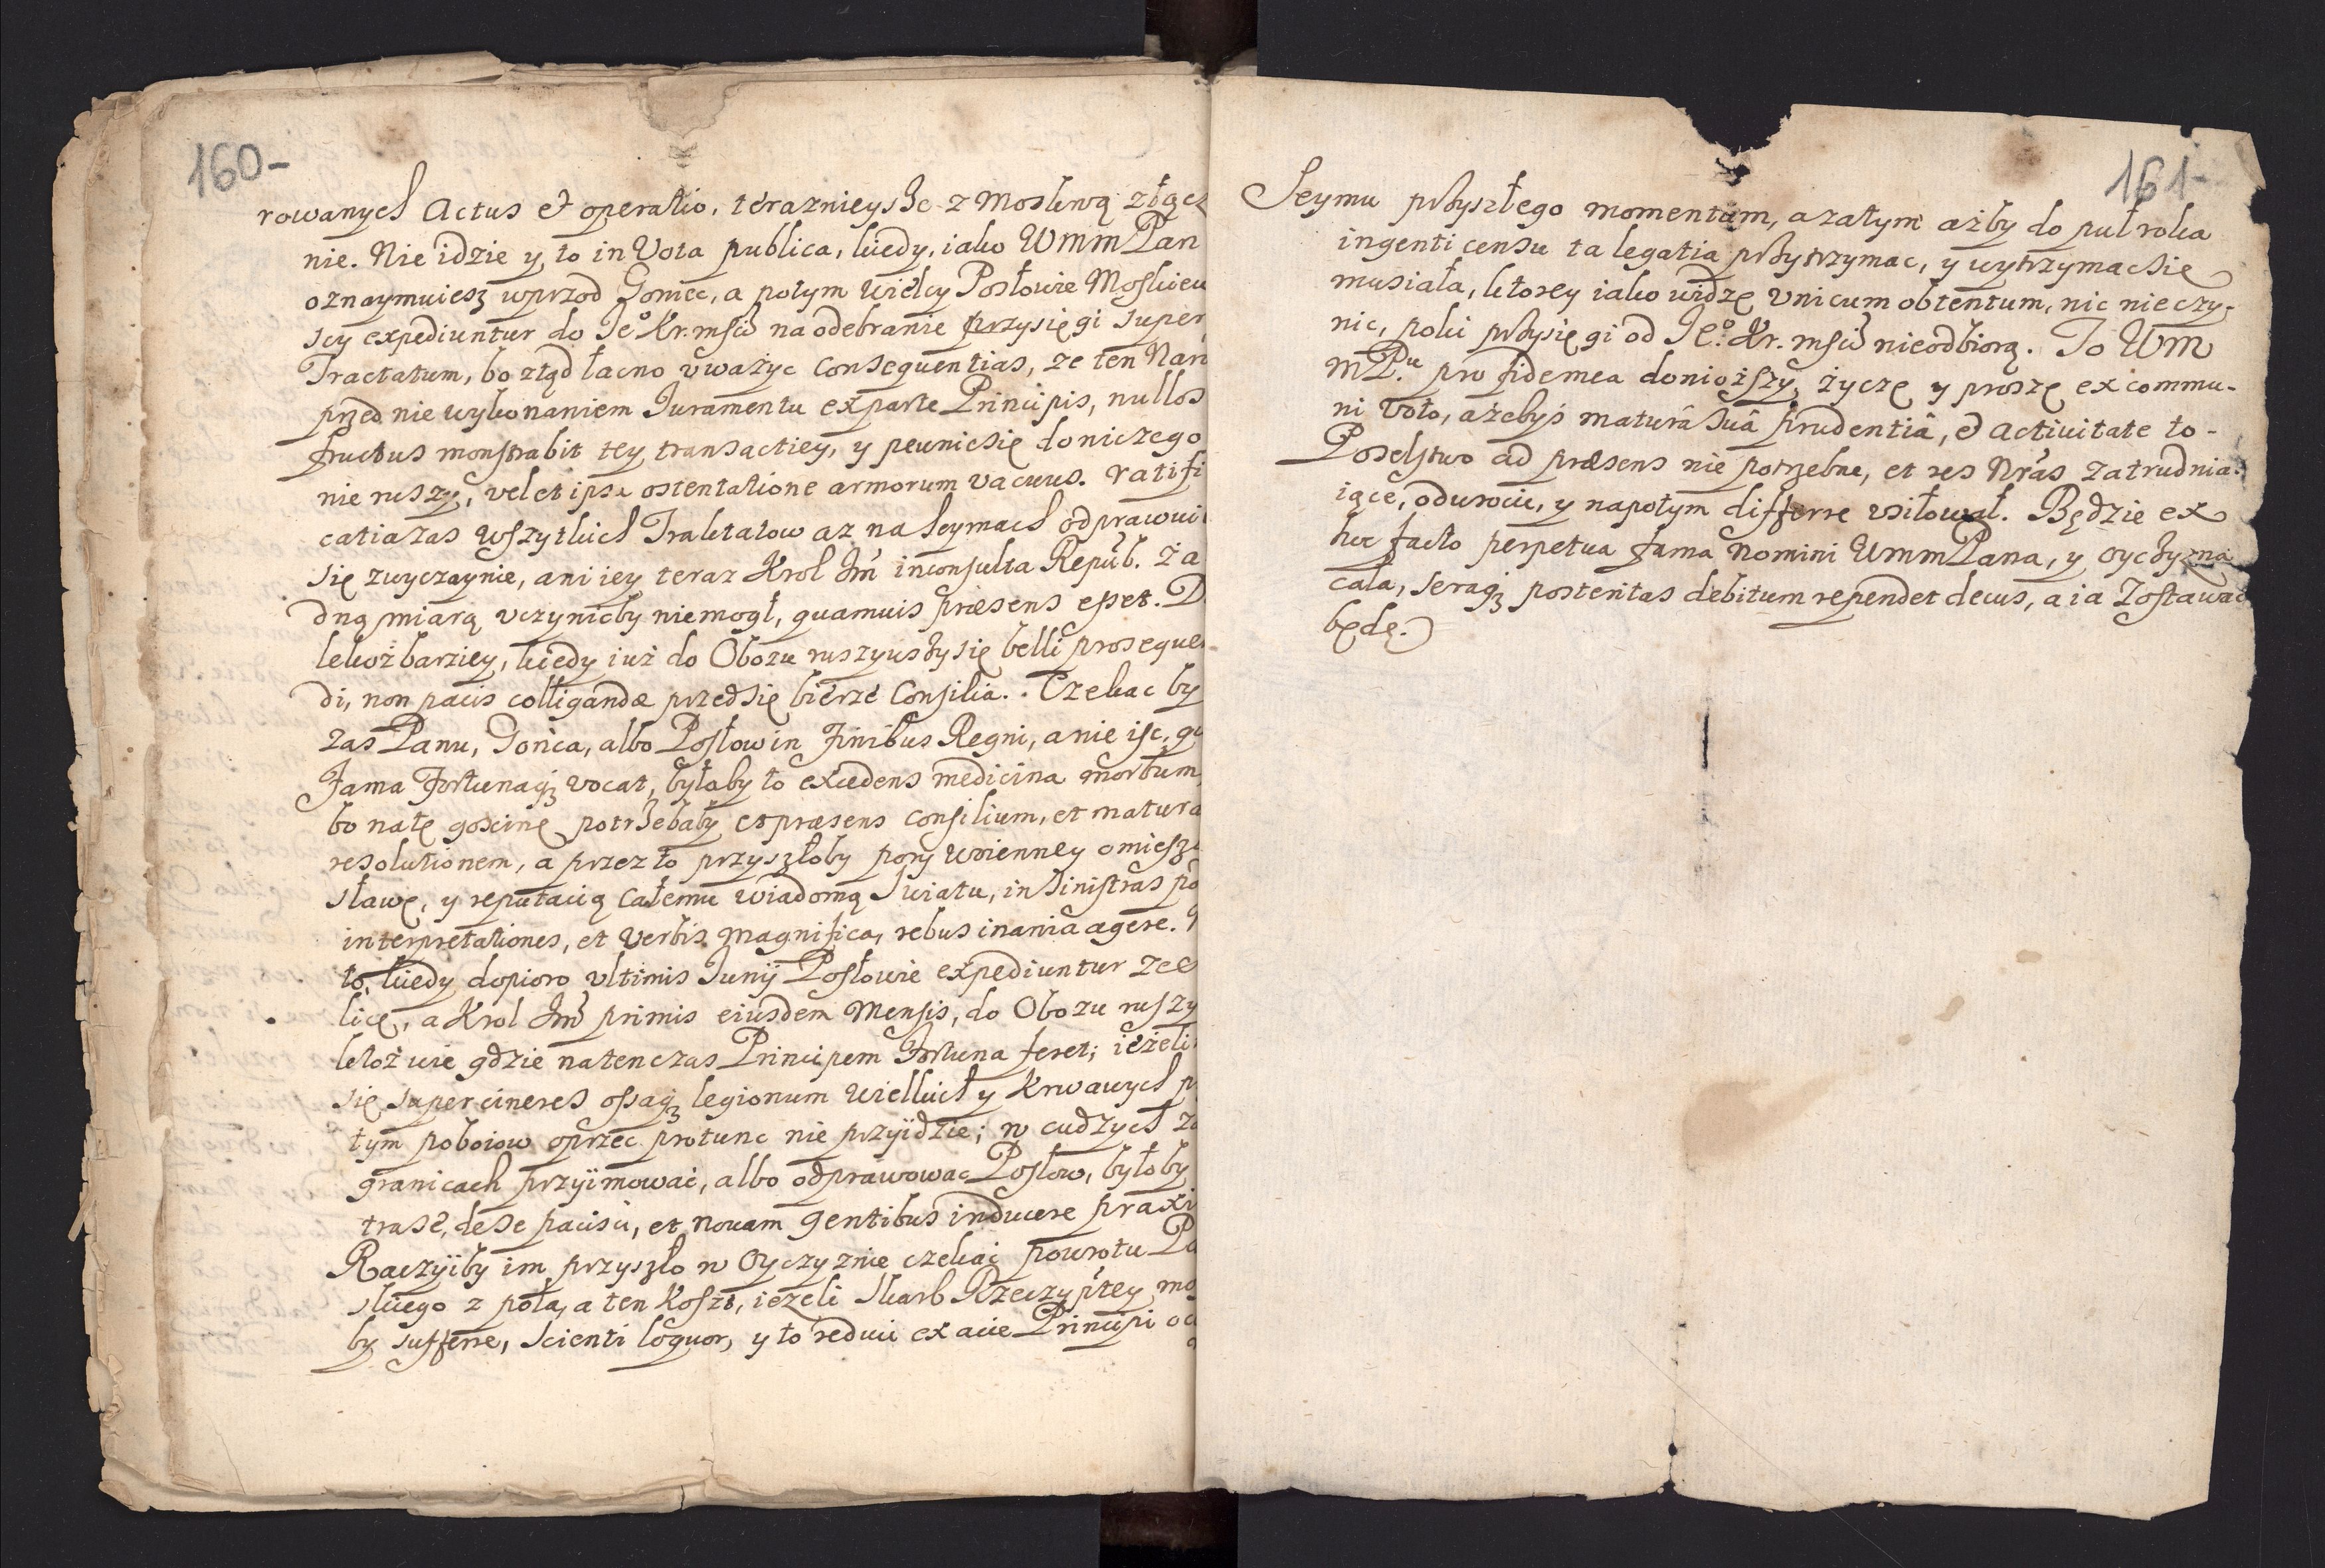 160-
rowanych Actus et operatio, teraznieysze z Moskwą złącz
nie. Nie idzie y to in Vota publica, kiedy, iako WmmPan
oznaymuiesz wprzod Goniec, a potym wielcy Posłowie Moskiew
scy expediuntur do Jeº Kr. mści na odebranie przysięgi super
Tractatum, bo ztąd łacno vważyc consequentias, ze ten Nar
przed nie wykonaniem Juramentu ex parte Principis, nullos
fructus monstrabit tey transactiey, y pewnie się do niczego
nie ruszy, vel et ipsa ostentatione armorum vacuus. ratifi
catia zas wszytkich Traktatow az na seymach odprawui
się zwyczaynie, ani iey teraz Krol Jm̃ inconsulta Repub. ża
dną miarą vczynicby niemogł, quamuis præsens esset. D
lekoż barziey, kiedy iuż do Obozu ruszywszy się belli proseque
di, non pacis colligandæ przedsię bierze Consilia. Czekac by
zas Panu, Gońca, albo Posłow in finibus Regni, a nie isc, qu
Fama Fortunaq₃ vocat, byłoby to excedens medicina morbum,
bo natę gościnę potrzebaby et præsens consilium, et matura
resolutionem, a przez to przyszłoby pory woienney omiesz
sławę, y reputacią całemu wiadomą Swiatu, in sinistras po
interpretationes, et verbis magnifica, rebus inania agere.
to, kiedy dopioro vltimis Junij Posłowie expediuntur ze
licę, a Krol Jm̃ primis eiusdem Mensis, do Obozu ruszy
ktoż wie gdzie natenczas Principem Fortuna feret; ieżeli
się super cineres ossaq₃ legionum wielkich y krwawych p
tym poboiow oprzec protunc nie przyidzie; w cudzych za
granicach przyimować, albo odprawowac Posłow, byłoby
trasć, dese pacisci, et nouam gentibus inducere praxi
Raczyiby im przyszło w Oyczyznie czekać powrotu Pa
skiego z pola, a ten koszt, ieżeli Skarb Rzeczyptey mo
by sufferre, scienti loquor, y to reduci ex acie Principi
161-
Seymu przyszłego momentum, a zatym ażby do puł roka
ingenti censu ta legatia przytrzymac, y wytrzymac się
musiała, ktorey iako widzę vnicum obtentum, nic nie czy-
nic, poki przysięgi od Jeº. Kr. mści nieodbiorą. To Wm
mPu pro fide mea doniozszy, życzę y proszę ex commu-
ni voto, ażebyś maturâ suâ prudentiâ, et actiuitate to-
Poselstwo ad præsens nie potrzebne, et res Nr̃as zatrudnia-
iące, odwrocic, y napotym differre vsiłował. Będzie ex
hoc facto perpetua fama Nomini WmmPana, y oyczyzna
cała, seraq₃ posteritas debitum rependet decus, a ia zostawac
będę.